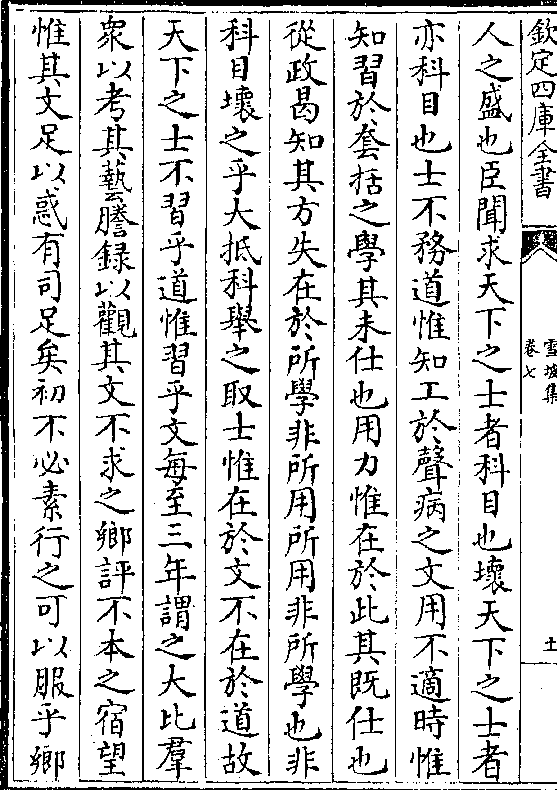 欽定四庫全書
雪坡集
卷七
土
人之盛也臣聞求天下之士者科目也壞天下之士者
亦科目也士不務道惟知工於聲病之文用不適時惟
知習於套括之學其未仕也用力惟在於此其既仕也
從政曷知其方失在於所學非所用所用非所學也非
科目壞之乎大抵科舉之取士惟在於文不在於道故
天下之士不習乎道惟習乎文每至三年謂之大比羣
衆以考其藝謄録以觀其文不求之鄉評不本之宿望
惟其文足以惑有司足矣初不必素行之可以服乎鄉